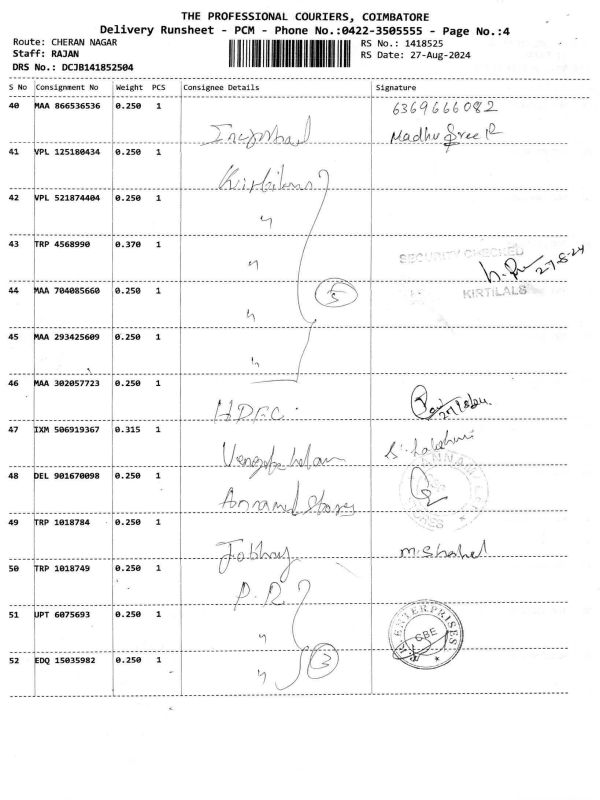 THE PROFESSIONAL COURIERS, COIMBATORE
Delivery Runsheet - PCM - Phone No.:0422-3505555 - Page No.:4
Route: CHERAN NAGAR RS No.: 1418525
Staff: RAJAN RS Date: 27-Aug-2024
DRS No.: DCJB141852504
S No Consignment No Weight PCS Consignee Details Signature
40 MAA 866536536 0.250 1 6369666082
Madhu Sree R
41 VPL 125180434 0.250 1
42 VPL 521874404 0.250 1
"
43 TRP 4568990 0.370 1
SECURITY CHECKED
" 27-8-24
44 MAA 704085660 0.250 1 5 KIRTILALS
"
45 MAA 293425609 0.250 1
"
46 MAA 302057723 0.250 1
HDFC.
47 IXM 506919367 0.315 1
48 DEL 901670098 0.250 1
Annamel Stores
49 TRP 1018784 0.250 1
50 TRP 1018749 0.250 1
P.R
51 UPT 6075693 0.250 1
" P.R. ENTERPRISES CBE
52 EDQ 15035982 0.250 1 3
"